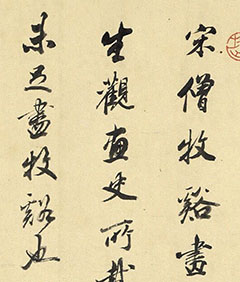 宋僧牧谿畫
生觀畫史所載
未足盡牧谿也